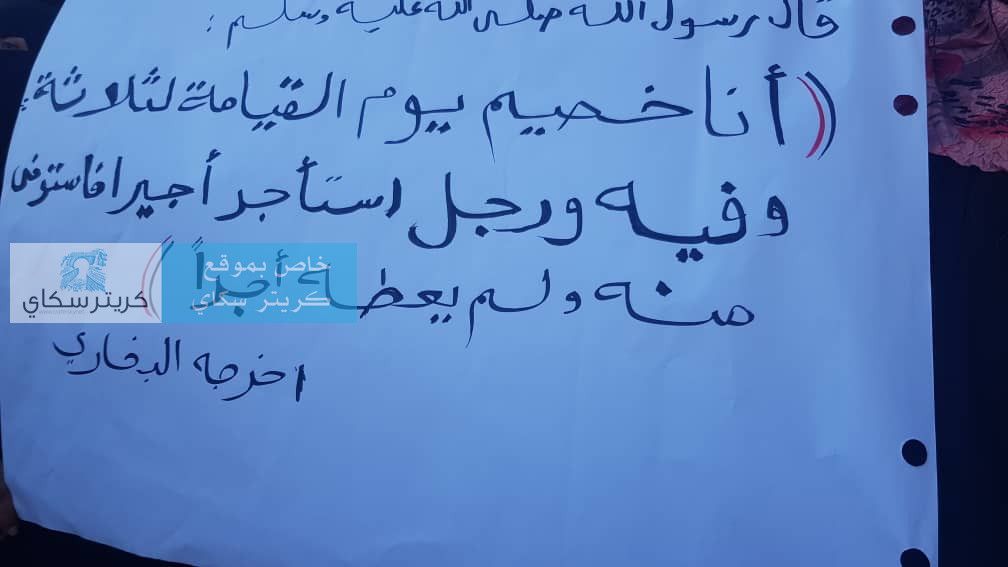 قال رسول الله صلى الله عليه وسلم :
(( أنا خصيم يوم القيامة لثلاثة :
وفيه ورجل استأجر أجيرا فاستوفى
منه ولم يعطه أجراً ))
اخرجه البخاري
خاص بموقع
كريتر سكاي
كريتر سكاي